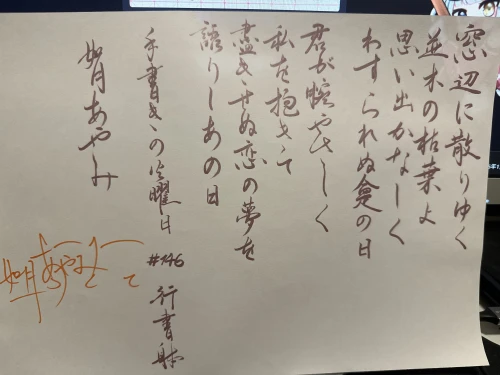 窓辺に散りゆく
並木の枯葉よ
思い出かなしく
わすられぬ愛の日
君が腕やさしく
私を抱きて
盡きせぬ恋の夢を
語りしあの日
手書きの火曜日
#146 行書体
如月あやみ
如月